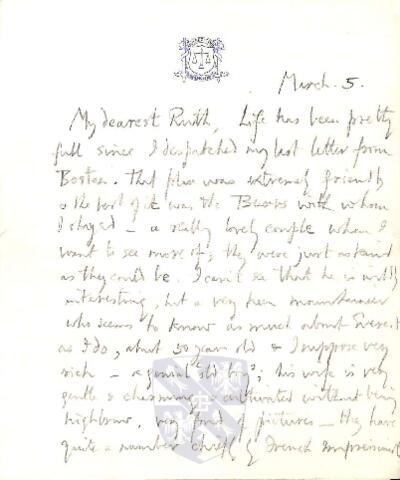 March. 5.
My dearest Ruth, Life has been pretty
full since I despatched my last letter from
Boston. That place was extremely friendly
& the best of it was the Bemis with whom
I stayed – a really lovely couple whom I
want to see more of; they were just as kind
as they could be. I can't see that he is wildly
interesting, but a very keen mountaineer
who seems to know as much about Everest
as I do, about 50 year old & I suppose very
rich – a genial 'old boy'; his wife is very
gentle & charming, & cultivated without being
highbrow, very fond of pictures – they have
quite a number chiefly by French impressionists